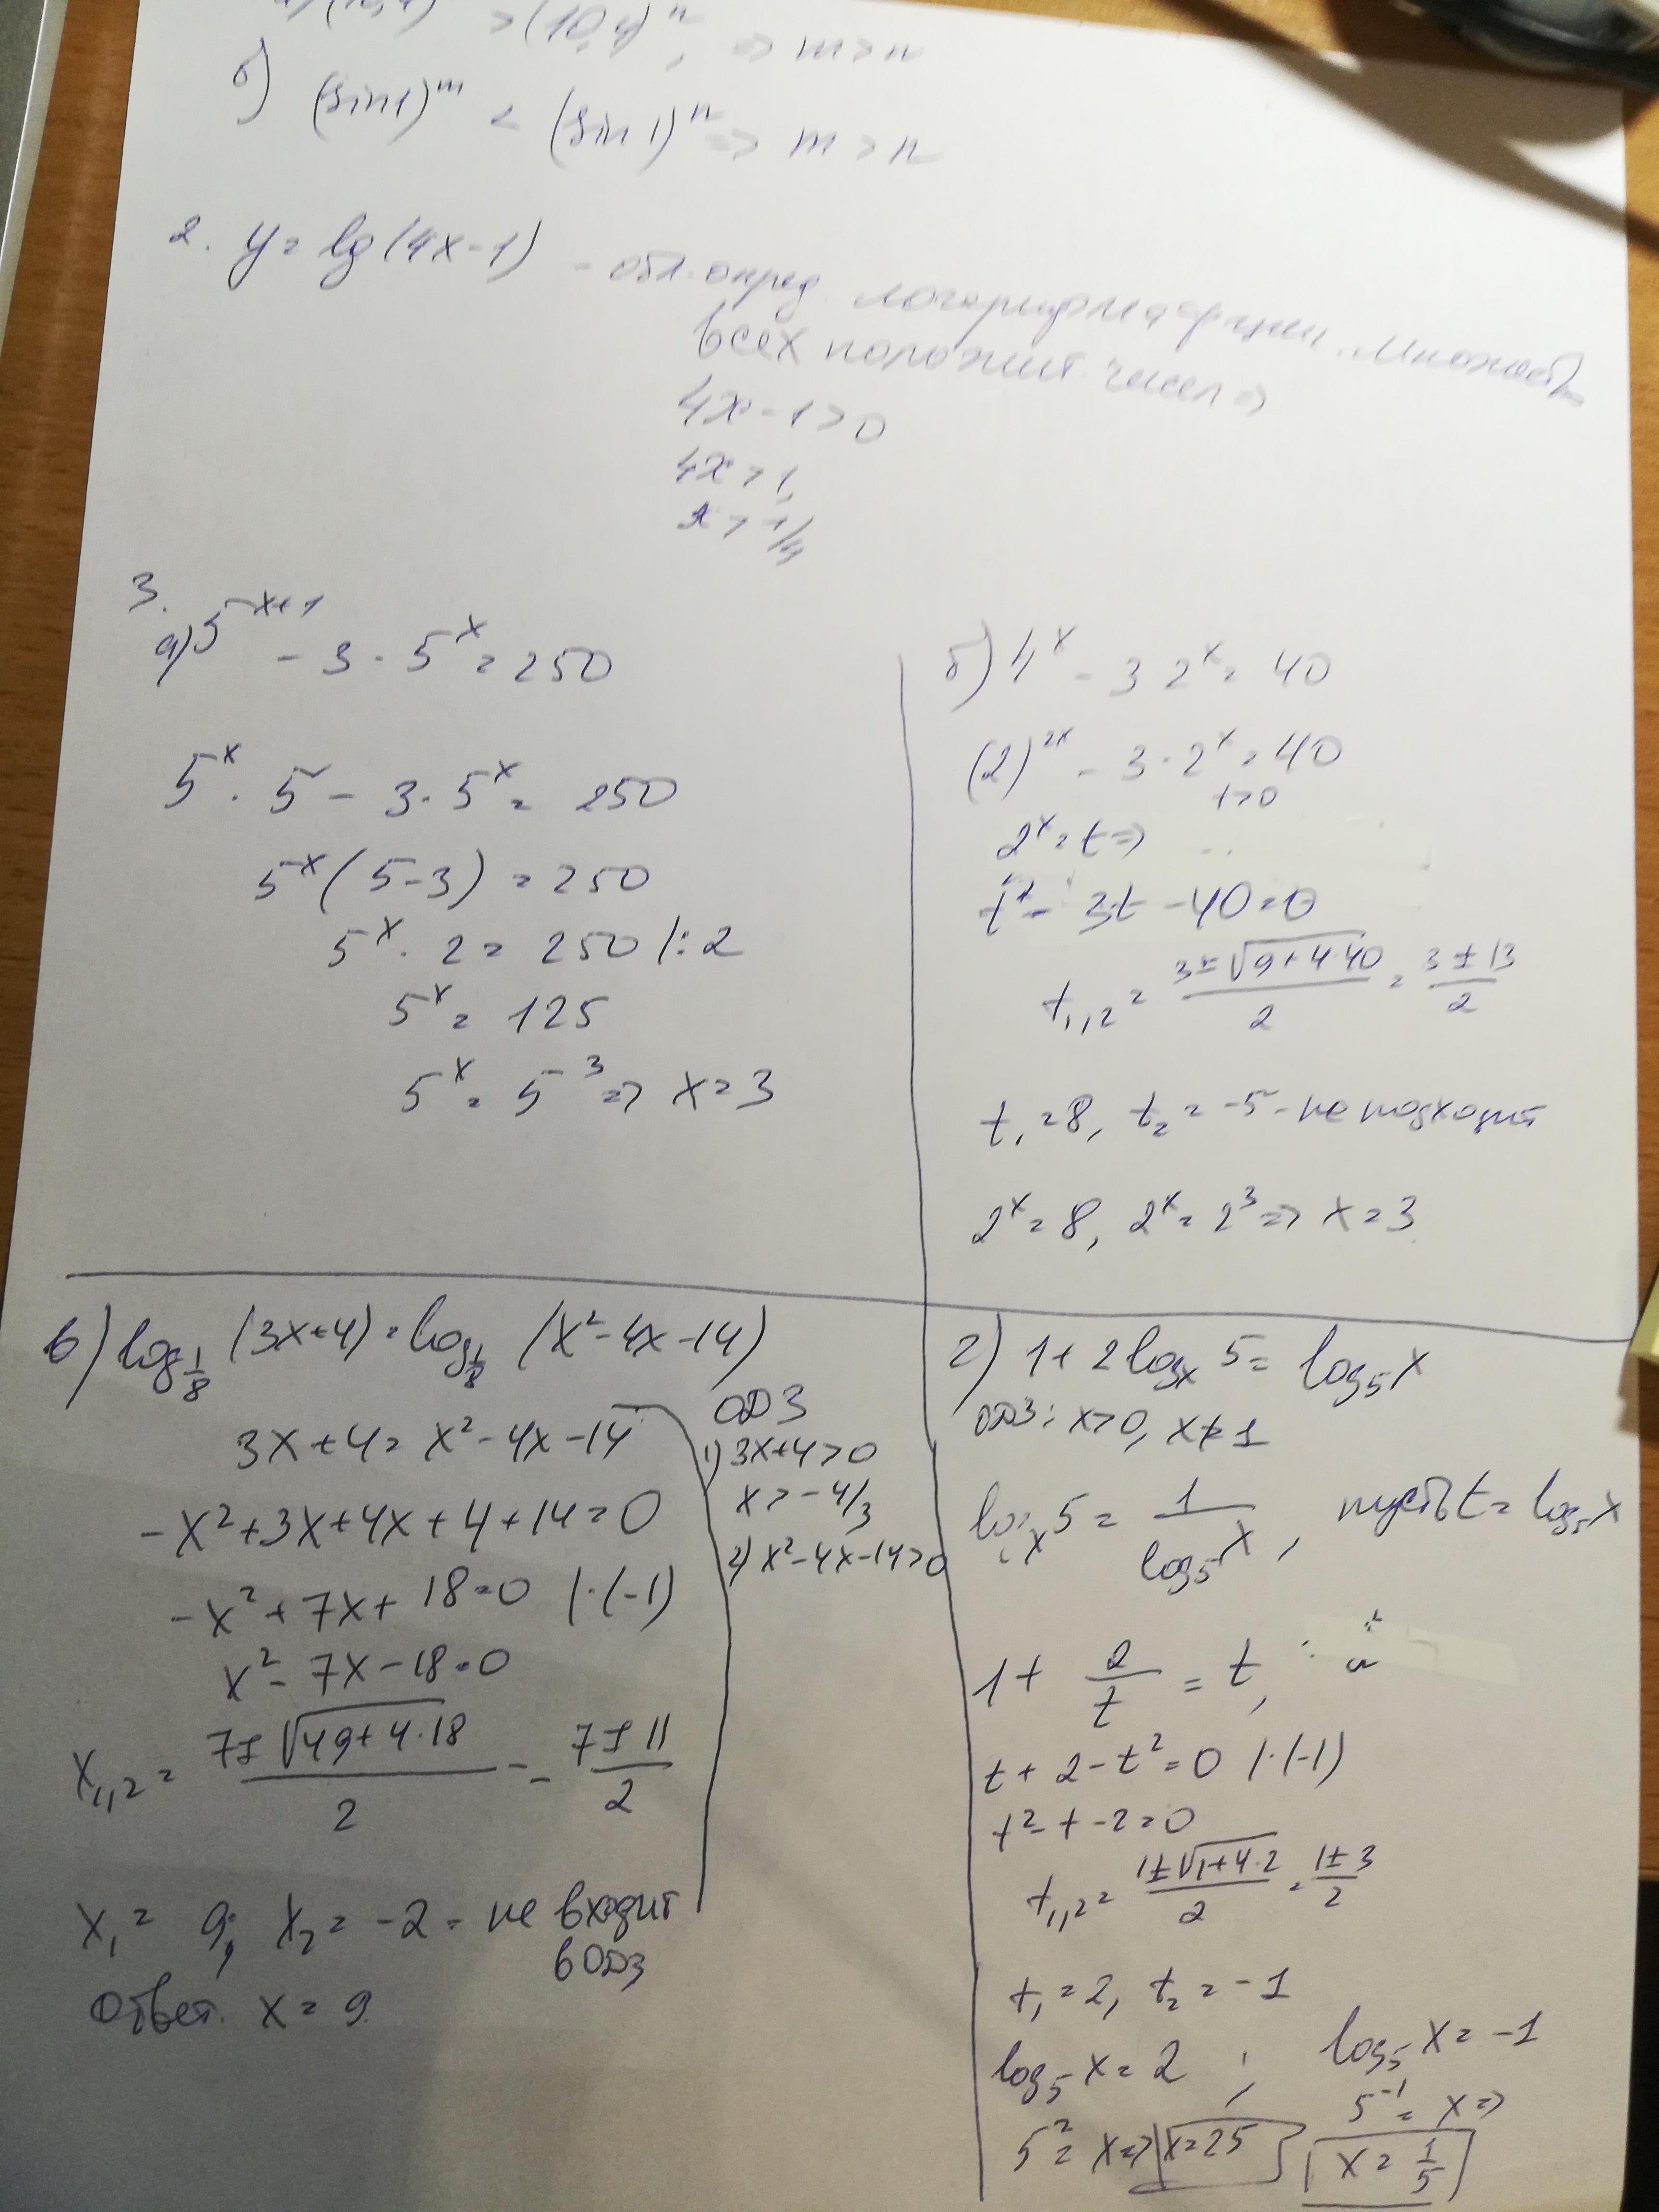 > (10,4)ⁿ, => m > n
б) (sin1)ᵐ < (sin 1)ⁿ => m > n
2. y = lg(4x-1) - обл. опред. логарифма
всех положит. чисел =>
4x - 1 > 0
4x > 1,
x > 1/4
3.
а) 5ˣ⁺¹ - 3 · 5ˣ = 250
5ˣ · 5 - 3 · 5ˣ = 250
5ˣ (5-3) = 250
5ˣ · 2 = 250 |:2
5ˣ = 125
5ˣ = 5³ => x = 3
б) 4ˣ - 3 2ˣ = 40
(2)²ˣ - 3 · 2ˣ = 40
t>0
2ˣ = t =>
t² - 3t - 40 = 0
t₁,₂ = (3 ± √(9+4·40))/2 = (3 ± 13)/2
t₁ = 8, t₂ = -5 - не подходит
2ˣ = 8, 2ˣ = 2³ => x = 3
в) log_(1/8) (3x+4) = log_(1/8) (x²-4x-14)
3x+4 = x²-4x-14
-x²+3x+4x+4+14 = 0
-x²+7x+18 = 0 |·(-1)
x² - 7x - 18 = 0
x₁,₂ = (7 ± √(49+4·18))/2 = (7 ± 11)/2
x₁ = 9; x₂ = -2 - не входит
в ОДЗ
Ответ. x = 9.
ОДЗ
1) 3x+4>0
x > -4/3
2) x²-4x-14>0
г) 1+2logₓ 5 = log₅x
ОДЗ: x>0, x≠1
logₓ5 = 1/log₅x, пусть t = log₅x
1 + 2/t = t,
t + 2 - t² = 0 |·(-1)
t² - t - 2 = 0
t₁,₂ = (1 ± √(1+4·2))/2 = (1 ± 3)/2
t₁ = 2, t₂ = -1
log₅x = 2 ; log₅x = -1
5² = x => x = 25
5⁻¹ = x =>
x = 1/5